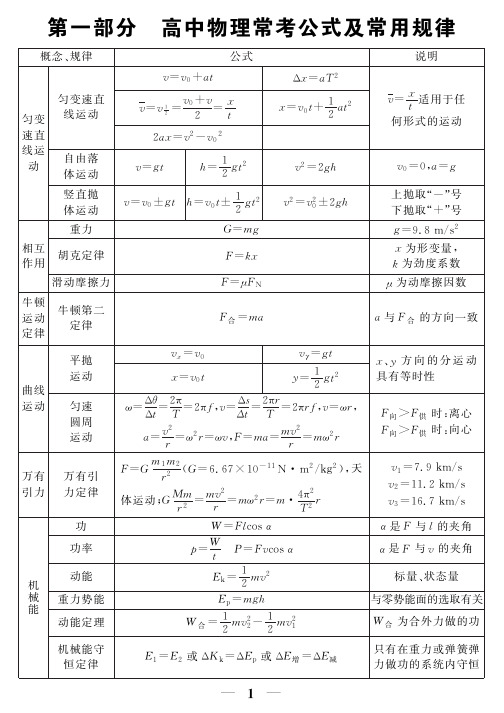 第一部分　高中物理常考公式及常用规律
概念、规律　公式　说明
匀变速直线运动
匀变速直
线运动
v=v₀+at　Δx=aT²
v̅=v_{t/2}=(v₀+v)/2=x/t　x=v₀t+½at²
2ax=v²-v₀²
v̅=x/t适用于任
何形式的运动
自由落
体运动
v=gt　h=½gt²　v²=2gh　v₀=0,a=g
竖直抛
体运动
v=v₀±gt　h=v₀t±½gt²　v²=v₀²±2gh
上抛取“-”号
下抛取“+”号
相互
作用
重力　G=mg　g=9.8 m/s²
胡克定律　F=kx
x 为形变量,
k 为劲度系数
滑动摩擦力　F=μF_N　μ为动摩擦因数
牛顿
运动
定律
牛顿第二
定律
F合=ma　a 与 F合 的方向一致
曲线
运动
平抛
运动
vₓ=v₀　v_y=gt
x=v₀t　y=½gt²
x、y 方向的分运动
具有等时性
匀速
圆周
运动
ω=Δθ/Δt=2π/T=2πf,v=Δs/Δt=2πr/T=2πrf,v=ωr,
a=v²/r=ω²r=ωv,F=ma=mv²/r=mω²r
F向>F供 时:离心
F向>F供 时:向心
万有
引力
万有引
力定律
F=G m₁m₂/r²(G=6.67×10⁻¹¹ N·m²/kg²),天
体运动:G Mm/r²=mv²/r=mω²r=m·4π²/T² r
v₁=7.9 km/s
v₂=11.2 km/s
v₃=16.7 km/s
机
械
能
功　W=Flcos α　α是 F 与 l 的夹角
功率　p=W/t　P=Fvcos α　α是 F 与 v 的夹角
动能　E_k=½mv²　标量、状态量
重力势能　E_p=mgh　与零势能面的选取有关
动能定理　W合=½mv₂²-½mv₁²　W合 为合外力做的功
机械能守
恒定律
E₁=E₂ 或 ΔK_k=ΔE_p 或 ΔE增=ΔE减
只有在重力或弹簧弹
力做功的系统内守恒
— 1 —